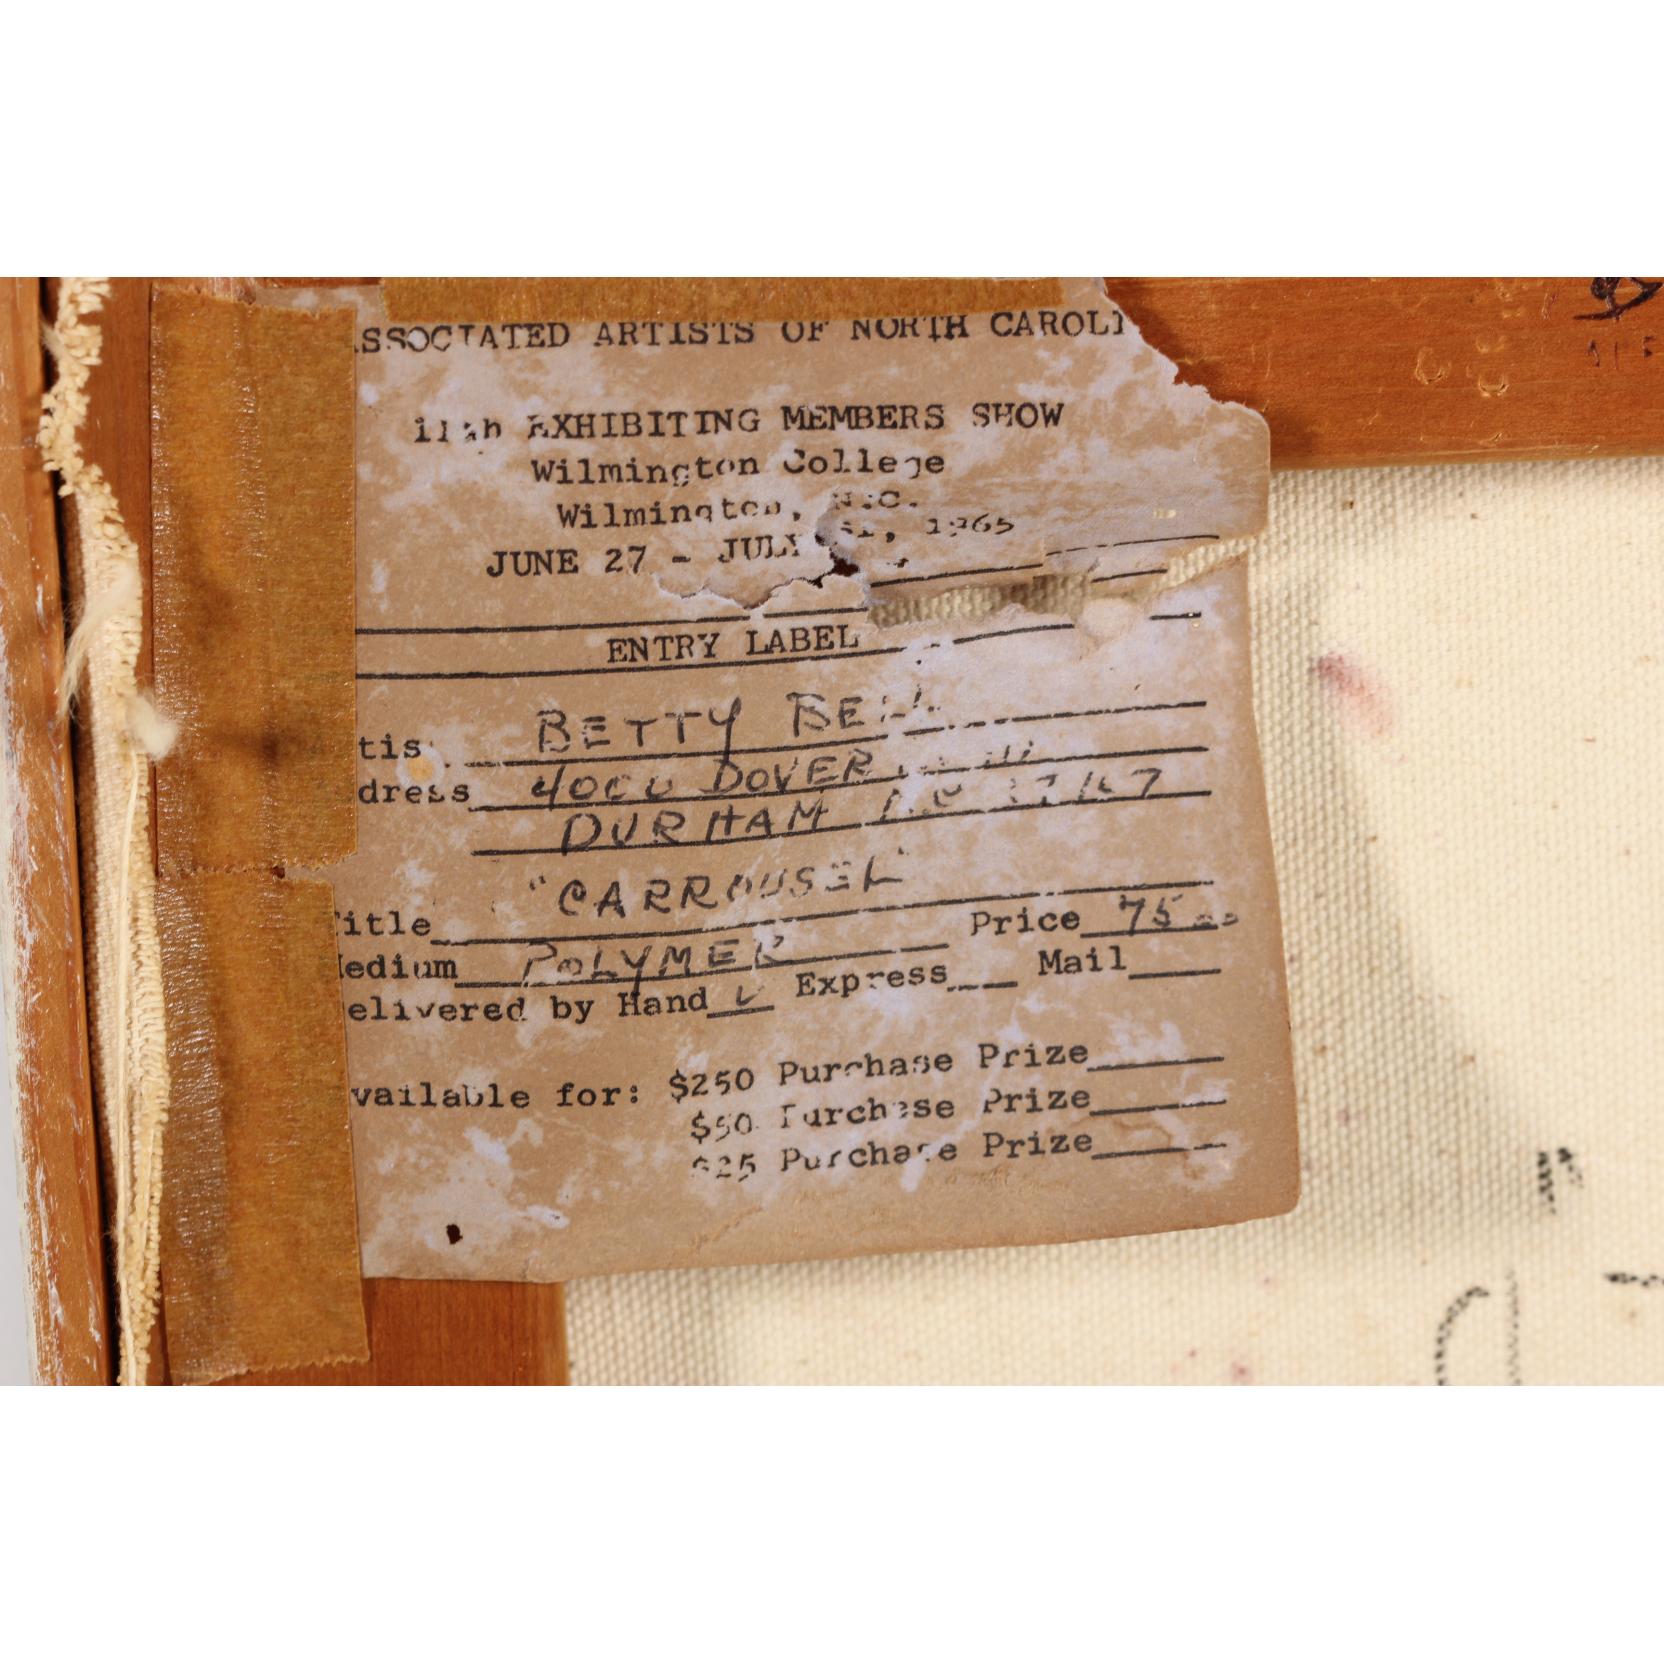 ASSOCIATED ARTISTS OF NORTH CAROLI
11th EXHIBITING MEMBERS SHOW
Wilmington College
Wilmington, N.C.
JUNE 27 - JULY 31, 1965
ENTRY LABEL
tist BETTY BELL
dress 4000 DOVER
DURHAM N.C.
Title "CARROUSEL"
Medium POLYMER Price 75
elivered by Hand ✓ Express Mail
vailable for: $250 Purchase Prize
$50 Purchase Prize
$25 Purchase Prize